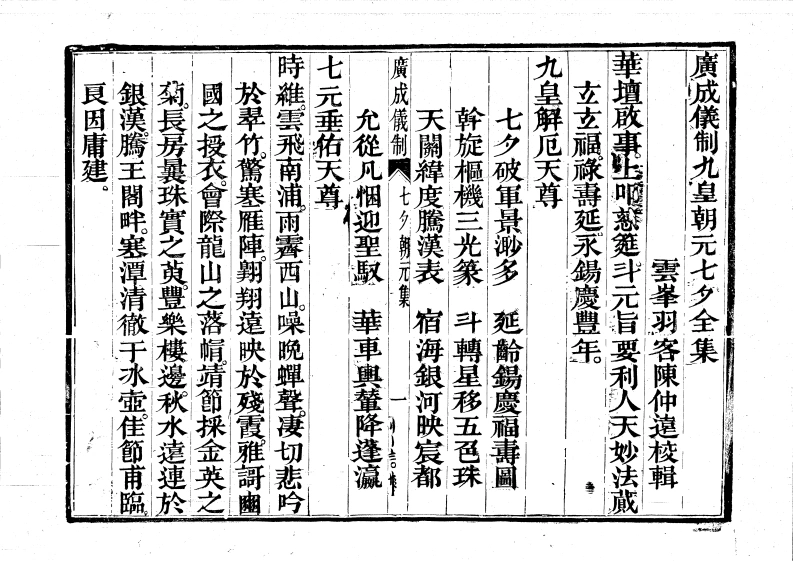 廣成儀制九皇朝元七夕全集
雲峯羽客陳仲遠校輯
華壇啟事上叩慈筵斗元旨要利人天妙法藏
玄玄福祿壽延永錫慶豐年
九皇解厄天尊
七夕破軍景渺多　延齡錫慶福壽圖
斡旋樞機三光篆　斗轉星移五色珠
天關緯度騰漢表　宿海銀河映宸都
廣成儀制　七夕朝元集　一
允從凡悃迎聖馭　華車輿輦降蓬瀛
七元垂佑天尊
時維雲飛南浦雨霽西山噪晚蟬聲淒切悲吟
於翠竹驚塞雁陣翱翔遠映於殘霞雅謌豳
國之授衣會際龍山之落帽靖節採金英之
菊長房曩珠實之萸豐樂樓邊秋水遠連於
銀漢騰王閣畔寒潭清徹于冰壺佳節甫臨
良因庸建